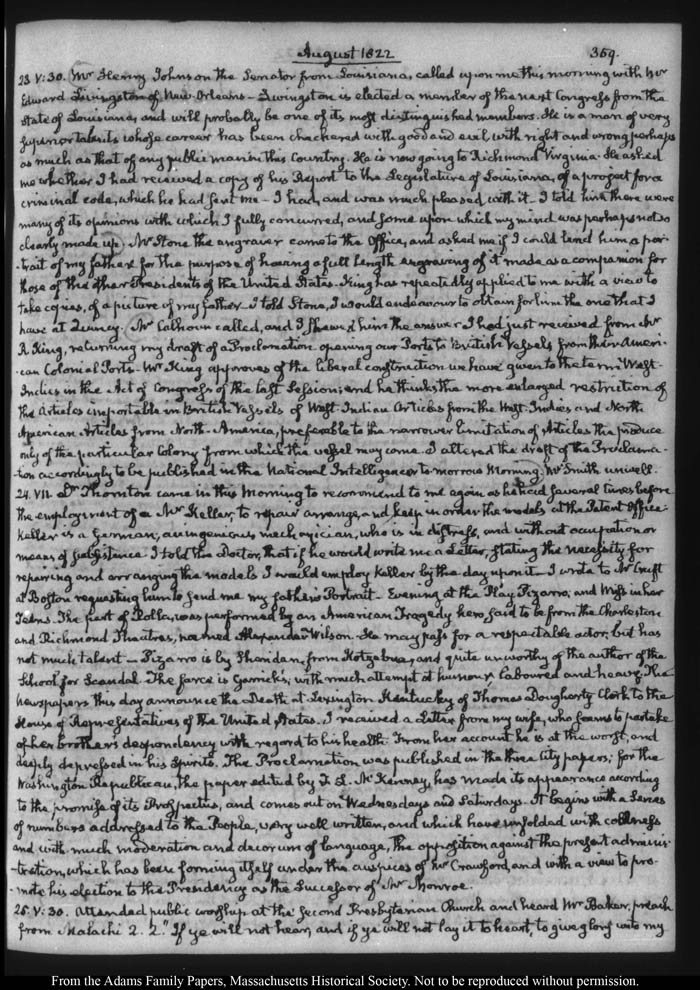 August 1822
359.
23. V:30. Mr Henry Johnson the Senator from Louisiana, called upon me this morning with Mr
Edward Livingston of New-Orleans — Livingston is elected a member of the next Congress from the
State of Louisiana, and will probably be one of its most distinguished members. He is a man of very
superior talents whose career has been checkered with good and evil, with right and wrong perhaps
as much as that of any public man in this Country. He is now going to Richmond Virginia. He asked
me whether I had received a copy of his Report to the Legislature of Louisiana, of a project for a
criminal code, which he had sent me — I had, and was much pleased with it — I told him there were
many of its opinions with which I fully concurred, and some upon which my mind was perhaps not so
clearly made up. Mr Stone the engraver came to the Office, and asked me if I could lend him a por-
-trait of my father for the purpose of having a full length engraving of it made as a companion for
those of the other Presidents of the United States. King has repeatedly applied to me with a view to
take copies, of a picture of my father — I told Stone, I would endeavour to obtain for him the one that I
have at Quincy. Mr Calhoun called, and I shewed him the answer I had just received from Mr
R. King, returning my draft of a Proclamation opening our Ports to British Vessels from their Ameri-
-can Colonial Ports — Mr King approves of the liberal construction we have given to the term West-
Indies in the Act of Congress of the last Session; and he thinks the more enlarged restriction of
the Articles importable in British Vessels of West-Indian Articles from the West-Indies and North
American Articles from North-America, preferable to the narrower limitation of Articles the produce
only of the particular Colony from which the vessel may come. I altered the draft of the Proclama-
-tion accordingly to be published in the National Intelligencer to-morrow Morning. Mr Smith unwell.
24. VII. Dr Thornton came in this Morning to recommend to me again as he had several times before
the employment of a Mr Keller, to repair arrange, and keep in order the models at the Patent Office.
Keller is a German, an ingenious mechanician, who is in distress, and without occupation or
means of subsistence. I told the Doctor, that if he would write me a Letter, stating the necessity for
repairing and arranging the models I would employ Keller by the day upon it — I wrote to Mr Cruft
at Boston requesting him to send me my father's Portrait — Evening at the Play Pizarro, and Miss in her
Teens. The part of Rolla, was performed by an American Tragedy hero, said to be from the Charleston
and Richmond Theatres, named Alexander Wilson. He may pass for a respectable actor, but has
not much talent — Pizarro is by Sheridan, from Kotzebue, and quite unworthy of the author of the
School for Scandal. The farce is Garrick's; with much attempt at humour laboured and heavy. The
newspapers this day announce the Death at Lexington Kentucky of Thomas Dougherty Clerk to the
House of Representatives of the United States. I received a Letter from my wife, who seems to partake
of her brother's despondency with regard to his health. From her account he is at the worst, and
deeply depressed in his spirits. The Proclamation was published in the three City papers; for the
Washington Republican, the paper edited by T. L. McKenney, has made its appearance according
to the promise of its Prospectus, and comes out on Wednesdays and Saturdays. It begins with a Series
of numbers addressed to the People, very well written, and which have unfolded with coolness
and with much moderation and decorum of language, the opposition against the present adminis-
-tration, which has been forming itself under the auspices of Mr Crawford, and with a view to pro-
-mote his election to the Presidency as the Successor of Mr Monroe.
25. V:30. Attended public worship at the Second Presbyterian Church and heard Mr Baker, preach
from Malachi 2. 2. "If ye will not hear, and if ye will not lay it to heart, to give glory unto my
From the Adams Family Papers, Massachusetts Historical Society. Not to be reproduced without permission.